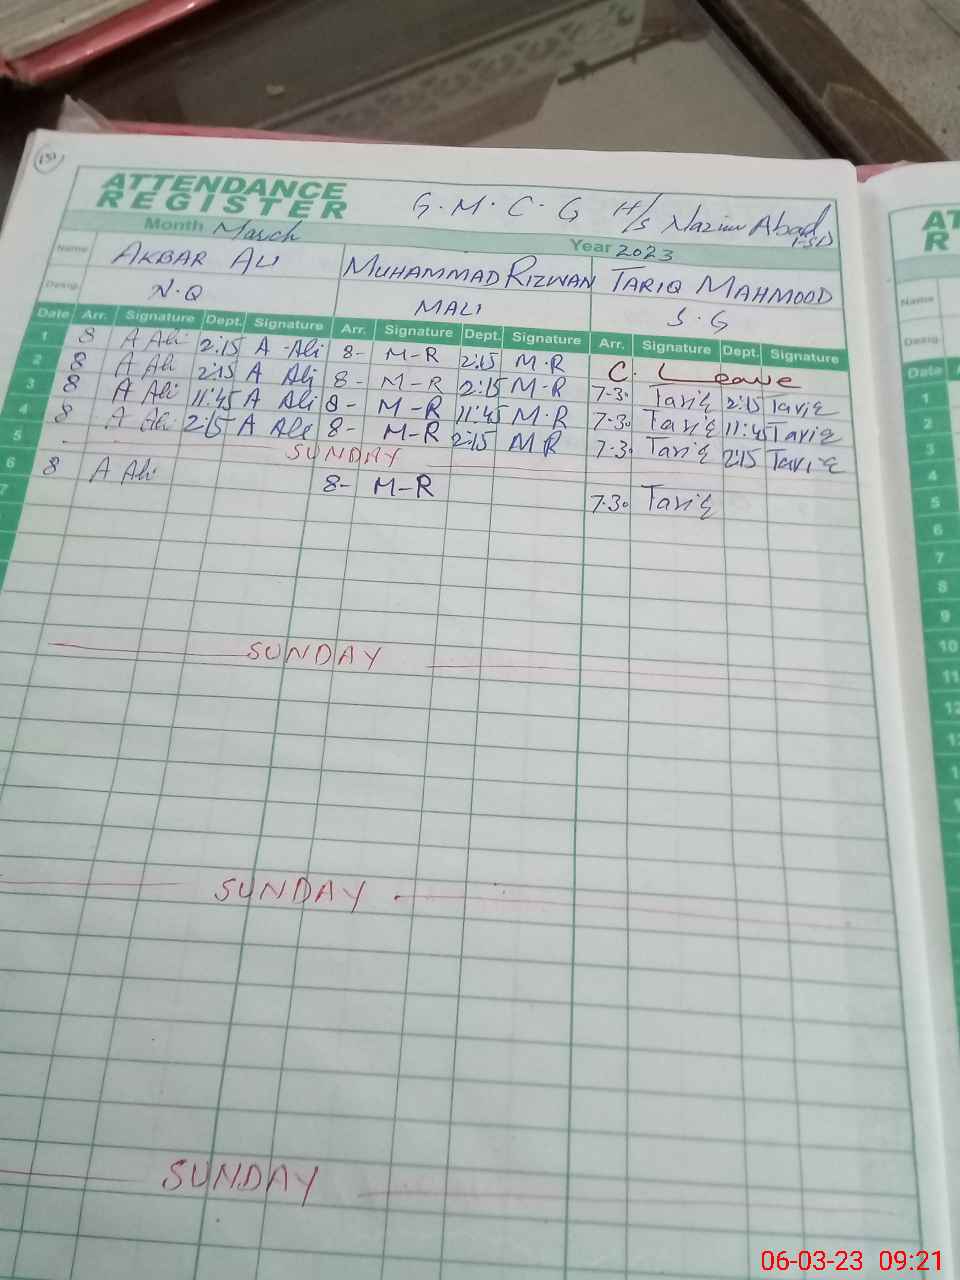 ATTENDANCE
REGISTER
G.M.C.G H/S Nazim Abad
Month March Year 2023
Name AKBAR ALI MUHAMMAD RIZWAN TARIQ MAHMOOD
Desig. N.Q MALI S.G
Date Arr. Signature Dept. Signature Arr. Signature Dept. Signature Arr. Signature Dept. Signature
1 8 A Ali 2:15 A Ali 8- M-R 2:15 M.R C. Leave
2 8 A Ali 2:15 A Ali 8- M-R 2:15 M-R 7-30 Tariq 2:15 Tariq
3 8 A Ali 11:45 A Ali 8- M-R 11:45 M-R 7-30 Tariq 11:45 Tariq
4 8 A Ali 2:15 A Ali 8- M-R 2:15 MR 7-30 Tariq 2:15 Tariq
5 SUNDAY
6 8 A Ali 8- M-R 7-30 Tariq
7
SUNDAY
SUNDAY
SUNDAY
AT
R
Name
Desig.
Date
1
2
3
4
5
6
7
8
9
10
11
12
06-03-23 09:21